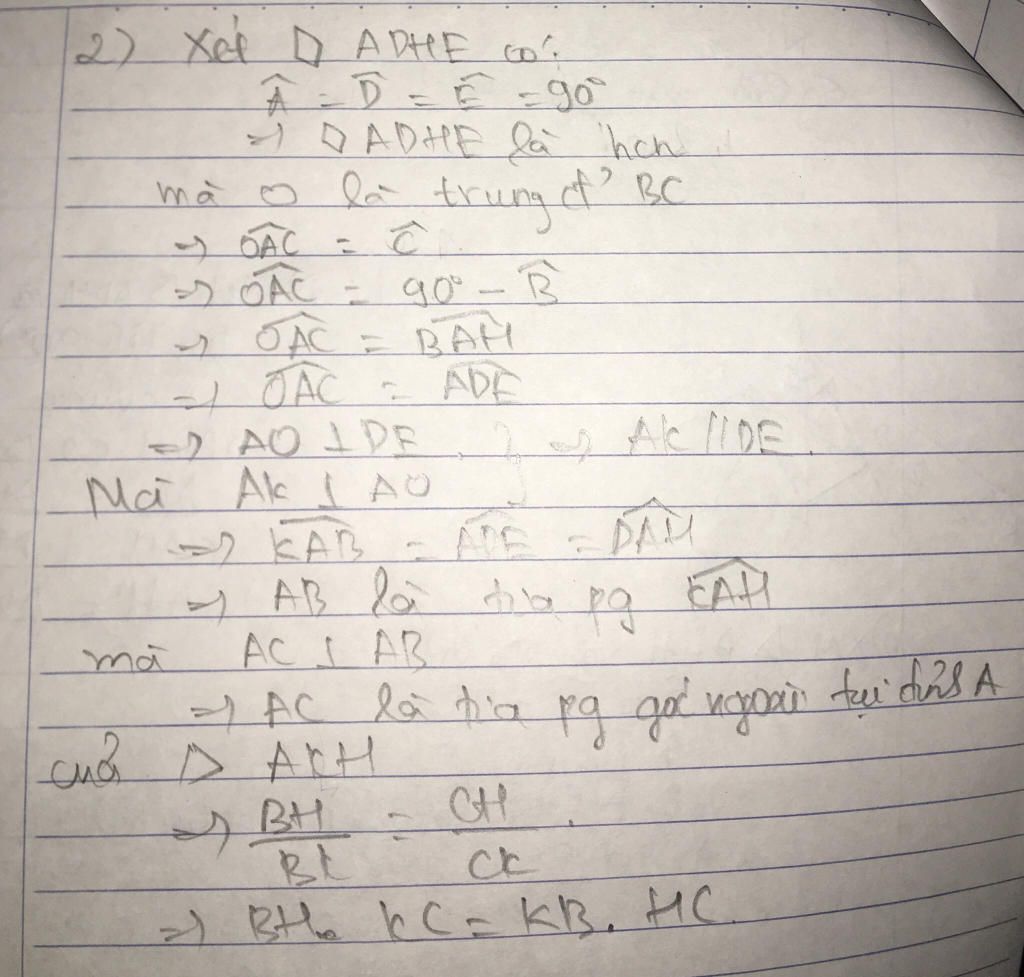 2) Xét □ ADHE có:
Â = D̂ = Ê = 90°
=> □ ADHE là hcn
mà O là trung đ' BC
=> \widehat{OAC} = Ĉ
=> \widehat{OAC} = 90° - B̂
=> \widehat{OAC} = \widehat{BAH}
=> \widehat{OAC} = \widehat{ADE}
=> AO ⊥ DE } => AK // DE.
Mà AK ⊥ AO
=> \widehat{KAB} = \widehat{ADE} = \widehat{DAH}
=> AB là tia pg \widehat{KAH}
mà AC ⊥ AB
=> AC là tia pg góc ngoài tại đỉnh A
của △ AKH
=> \frac{BH}{BK} = \frac{CH}{CK}.
=> BH. KC = KB. HC.